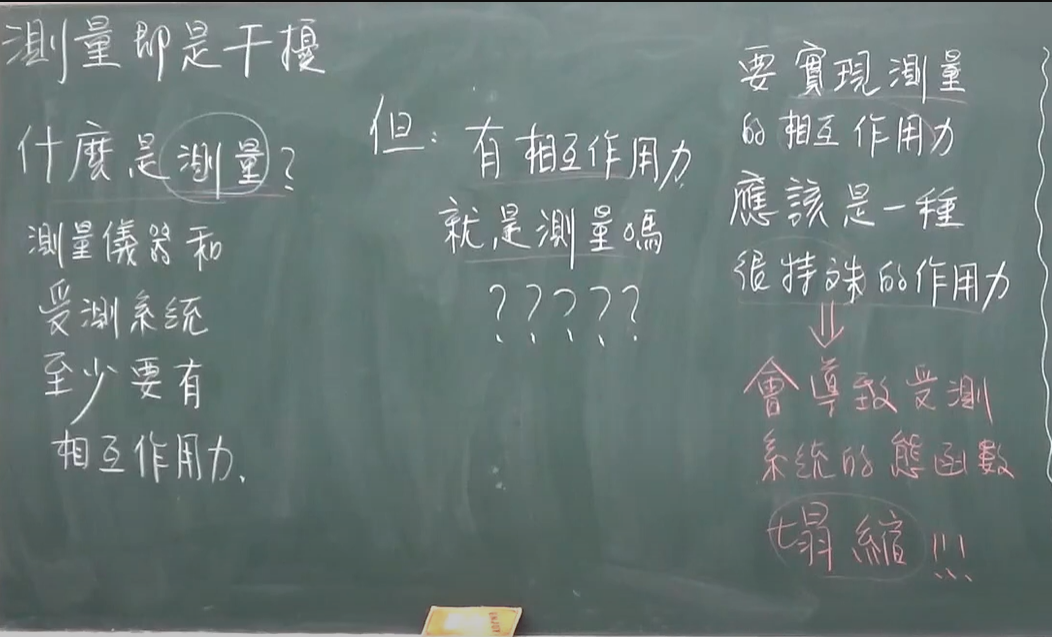 測量即是干擾
什麼是測量?
測量儀器和
受測系統
至少要有
相互作用力.
但:有相互作用力
就是測量嗎
?????
要實現測量
的相互作用力
應該是一種
很特殊的作用力
⇓
會導致受測
系統的態函數
塌縮!!!